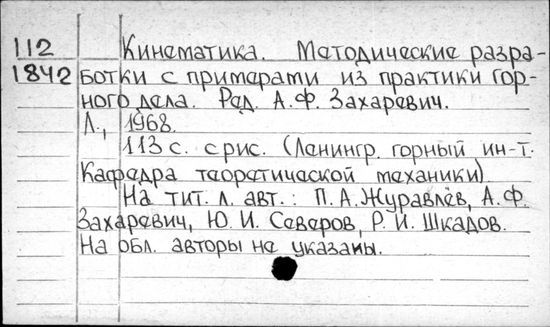 112 Кинематика. Методические разра-
1842 ботки с примерами из практики гор-
ного дела. Ред. А.Ф. Захаревич.
Л., 1968.
113 с. с рис. (Ленингр. горный ин-т.
Кафедра теоретической механики)
На тит. л. авт.: П.А. Журавлёв, А.Ф.
Захаревич, Ю.И. Северов, Р.И. Шкадов.
На обл. авторы не указаны.